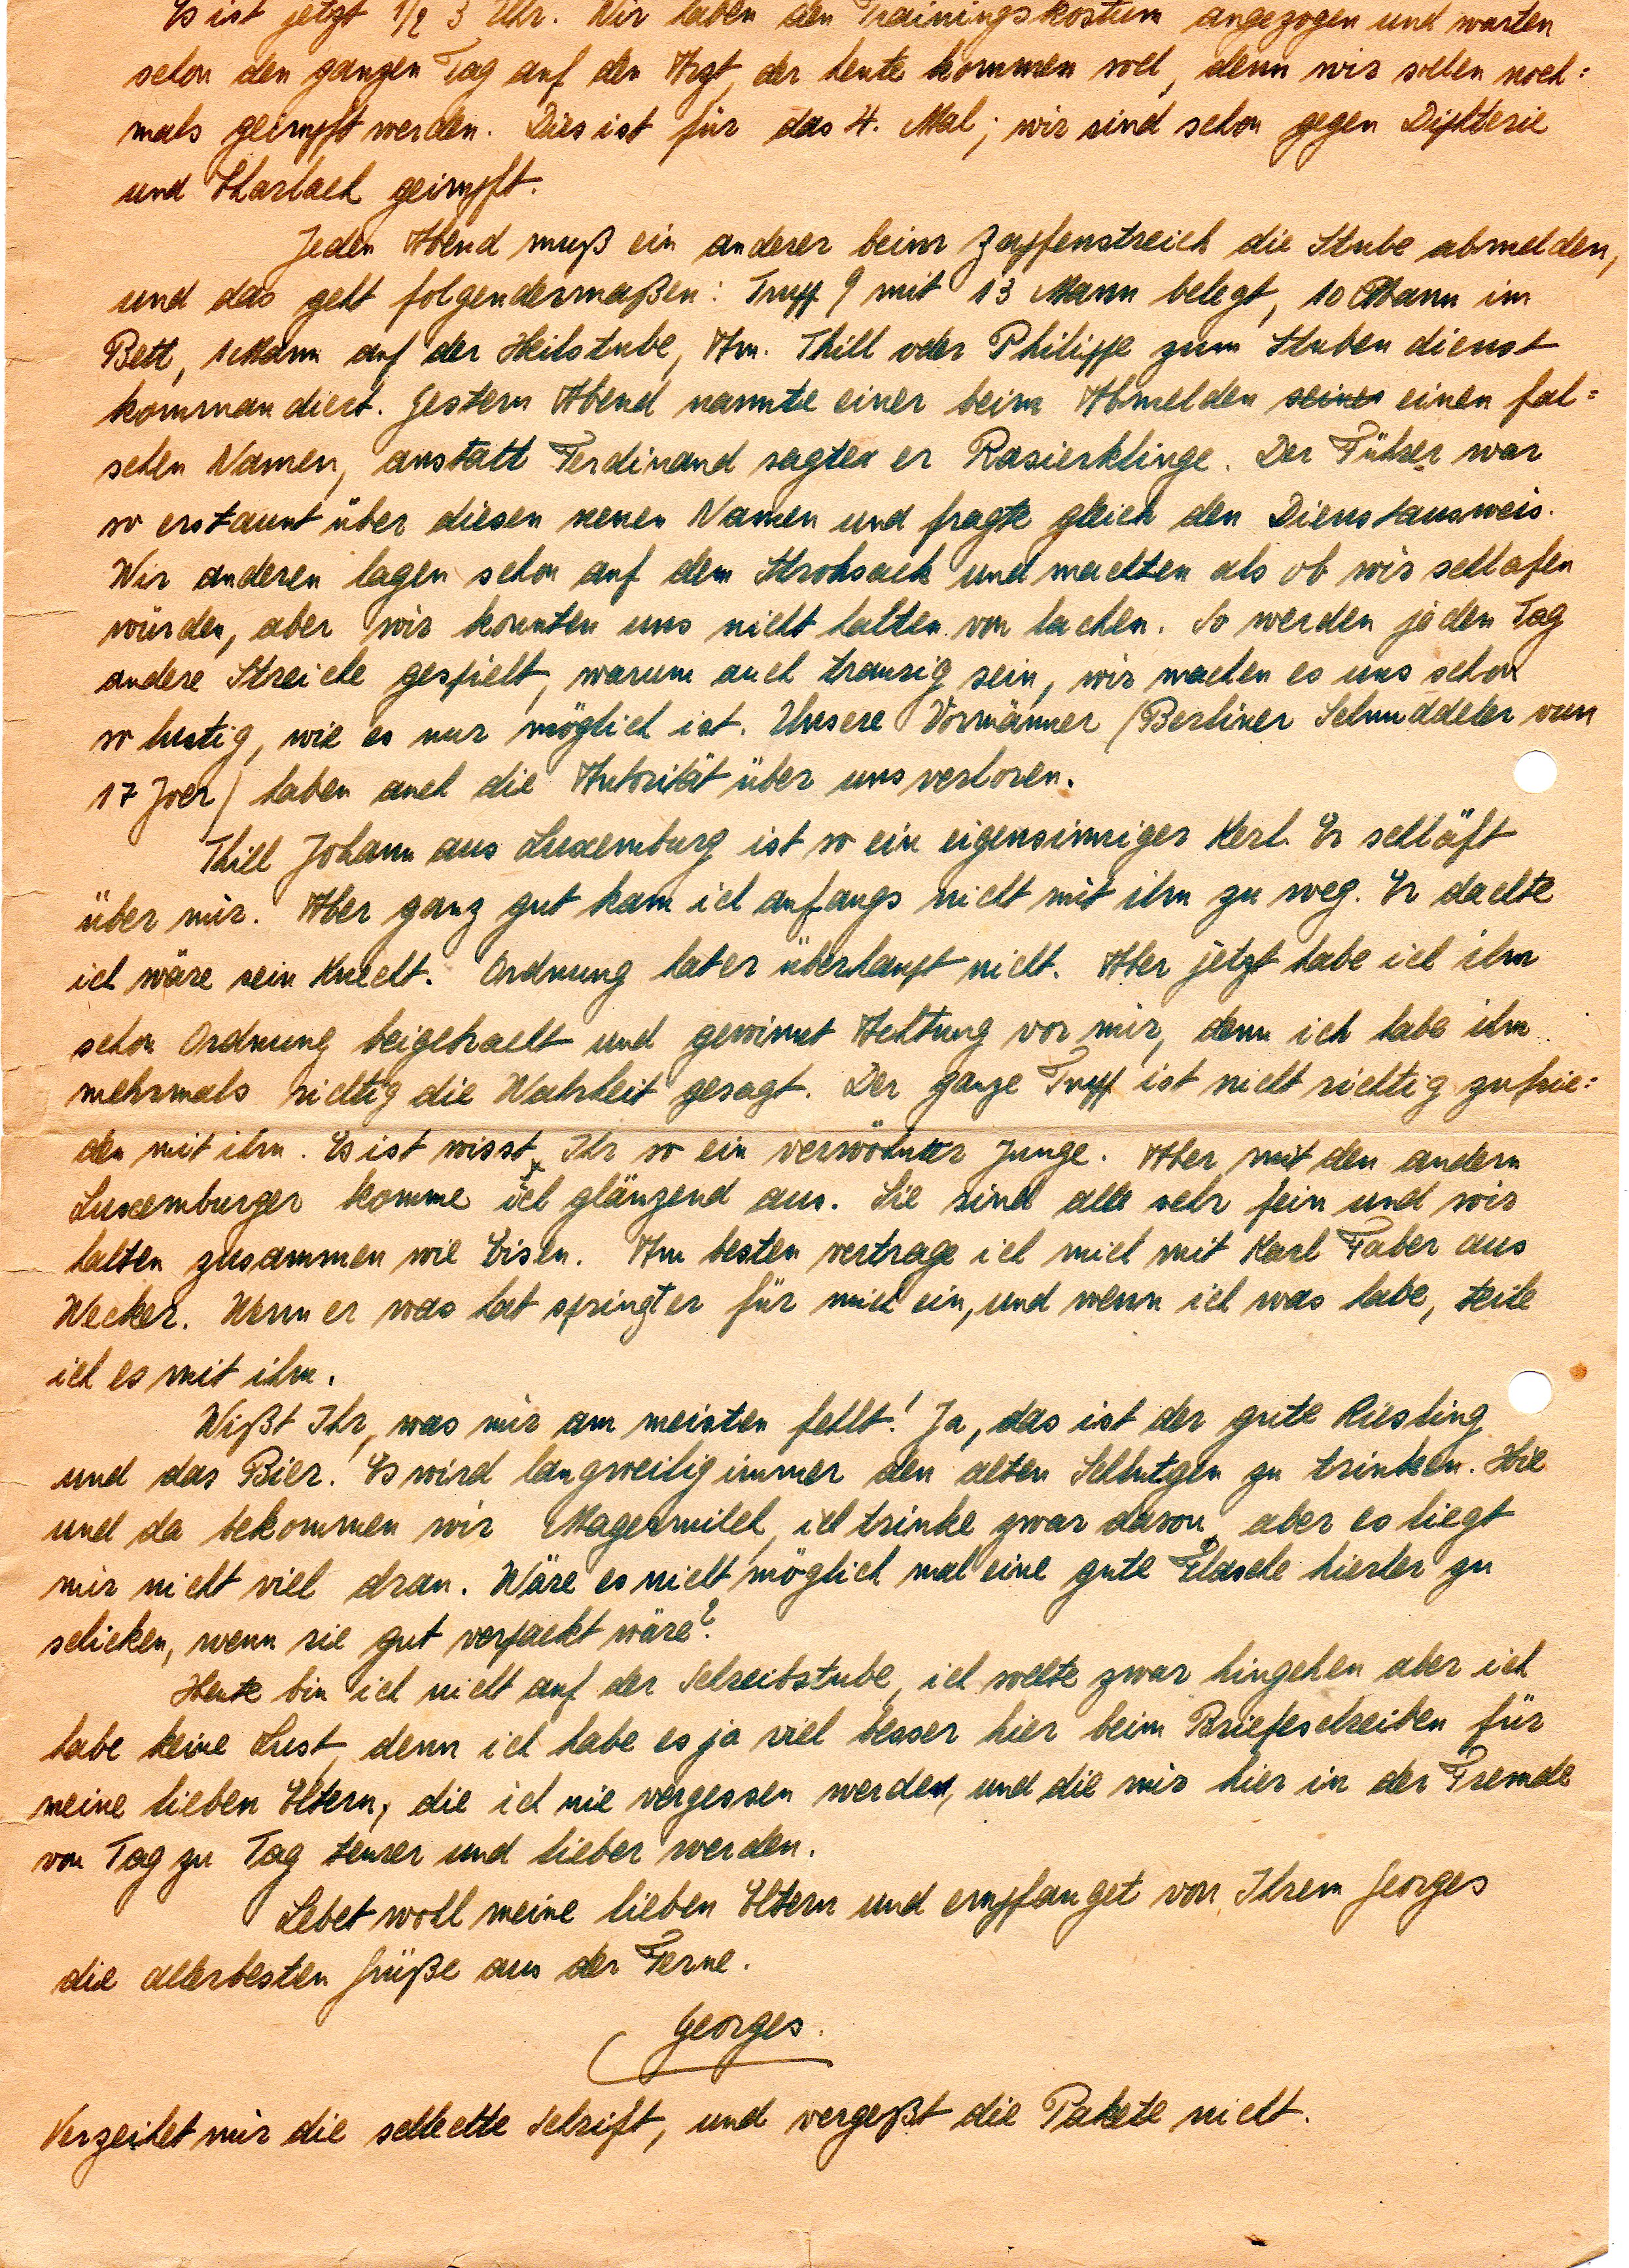 Es ist jetzt 1/2 3 Uhr. Wir haben den Trainingskostüm angezogen und warten
schon den ganzen Tag auf den Arzt, der heute kommen soll, denn wir sollen noch=
mals geimpft werden. Dies ist für das 4. Mal; wir sind schon gegen Diphterie
und Scharlach geimpft.
Jeden Abend muß ein anderer beim Zapfenstreich die Stube abmelden,
und das geht folgendermaßen: Trupp 9 mit 13 Mann belegt, 10 Mann im
Bett, 1 Mann auf der Heilstube, Am. Thill oder Philippe zum Stubendienst
kommandiert. Gestern Abend nannte einer beim Abmelden seinen einen fal=
schen Namen, anstatt Ferdinand sagte er Rasierklinge. Der Führer war
so erstaunt über diesen neuen Namen und fragte gleich den Dienstausweis.
Wir anderen lagen schon auf dem Strohsack und machten als ob wir schlafen
würden, aber wir konnten uns nicht halten von lachen. So werden jeden Tag
andere Streiche gespielt, warum auch traurig sein, wir machen es uns schon
so lustig, wie es nur möglich ist. Unsere Vormänner (Berliner Schnuddeler vun
17 Joer) haben auch die Autorität über uns verloren.
Thill Johann aus Luxemburg ist so ein eigensinniger Kerl. Er schläft
über mir. Aber ganz gut kam ich anfangs nicht mit ihm zu weg. Er dachte
ich wäre sein Knecht. Ordnung hat er überhaupt nicht. Aber jetzt habe ich ihm
schon Ordnung beigebracht und gewinnt Achtung vor mir, denn ich habe ihm
mehrmals richtig die Wahrheit gesagt. Der ganze Trupp ist nicht richtig zufrie=
den mit ihm. Es ist wisst Ihr so ein verwöhnter Junge. Aber mit den andern
Luxemburger komme ich glänzend aus. Sie sind alle sehr fein und wir
halten zusammen wie Eisen. Am besten vertrage ich mich mit Karl Faber aus
Wecker. Wenn er was hat springt er für mich ein, und wenn ich was habe, teile
ich es mit ihm.
Wißt Ihr, was mir am meisten fehlt! Ja, das ist der gute Riesling
und das Bier! Es wird langweilig immer den alten Schlutgen zu trinken. Hie
und da bekommen wir Magermilch, ich trinke zwar davon, aber es liegt
mir nicht viel dran. Wäre es nicht möglich mal eine gute Flasche hierher zu
schicken, wenn sie gut verpackt wäre?
Heute bin ich nicht auf der Schreibstube, ich wollte zwar hingehen aber ich
habe keine Lust, denn ich habe es ja viel besser hier beim Briefeschreiben für
meine lieben Eltern, die ich nie vergessen werde, und die mir hier in der Fremde
von Tag zu Tag teurer und lieber werden.
Lebet wohl meine lieben Eltern und empfanget von Ihrem Georges
die allerbesten Grüße aus der Ferne.
Georges.
Verzeihet mir die schlechte Schrift, und vergeßt die Pakete nicht.